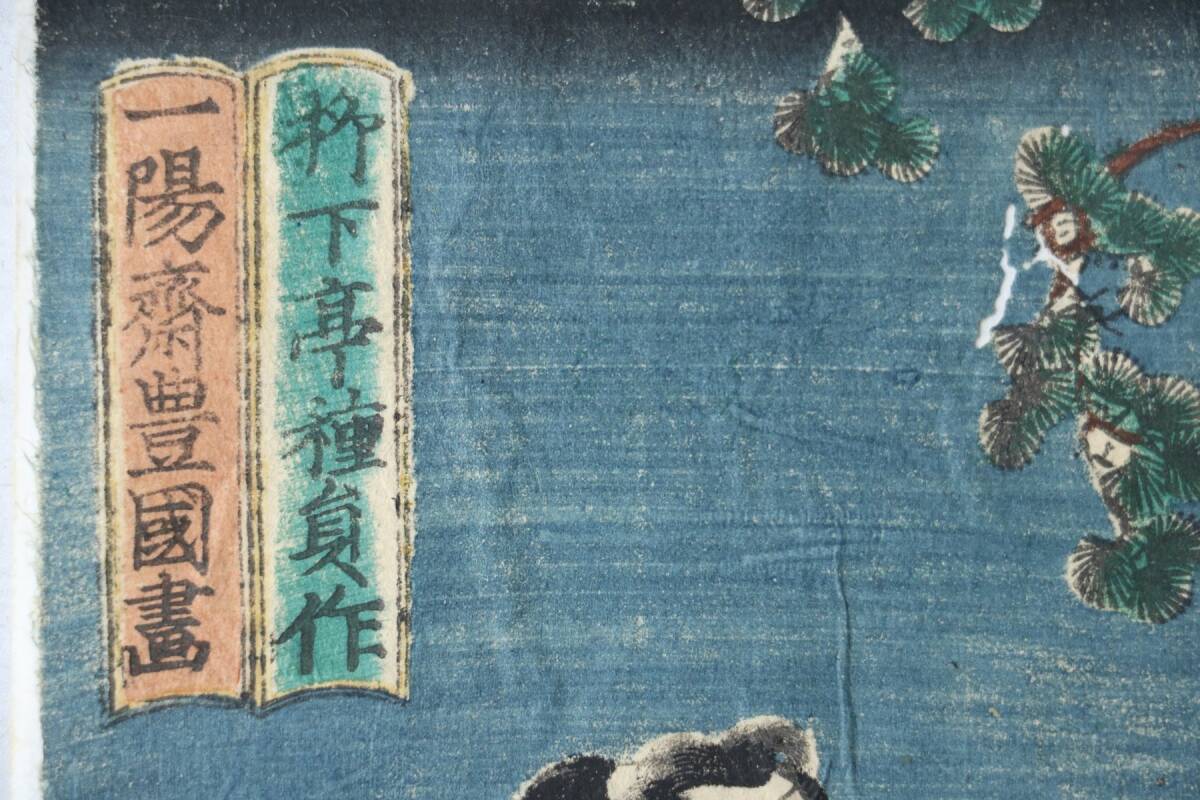 柳下亭種員作
一陽齋豊國畫